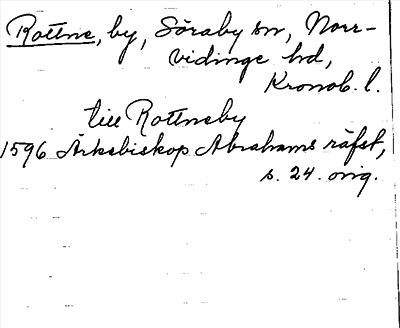 Rottne, by, Söraby sn, Norr-
vidinge hd,
Kronob. l.
till Rottneby
1596 Ärkebiskop Abrahams räfst,
s. 24. orig.